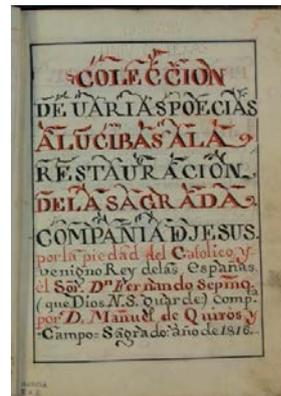 COLECCION
DE UARIAS POECIAS
ALUCIBAS A LA
RESTAURACION
DE LA SAGRADA
COMPANIA DE JESUS.
por la piedad del Catolico, y
venigno Rey de las Españas
el Soṙ. Dn Fernando Sepmo.
(que Dios N.S. guarde) Comp.ta
por D. Manuel de Quiros y
Campo=Sagrado: año de 1816.